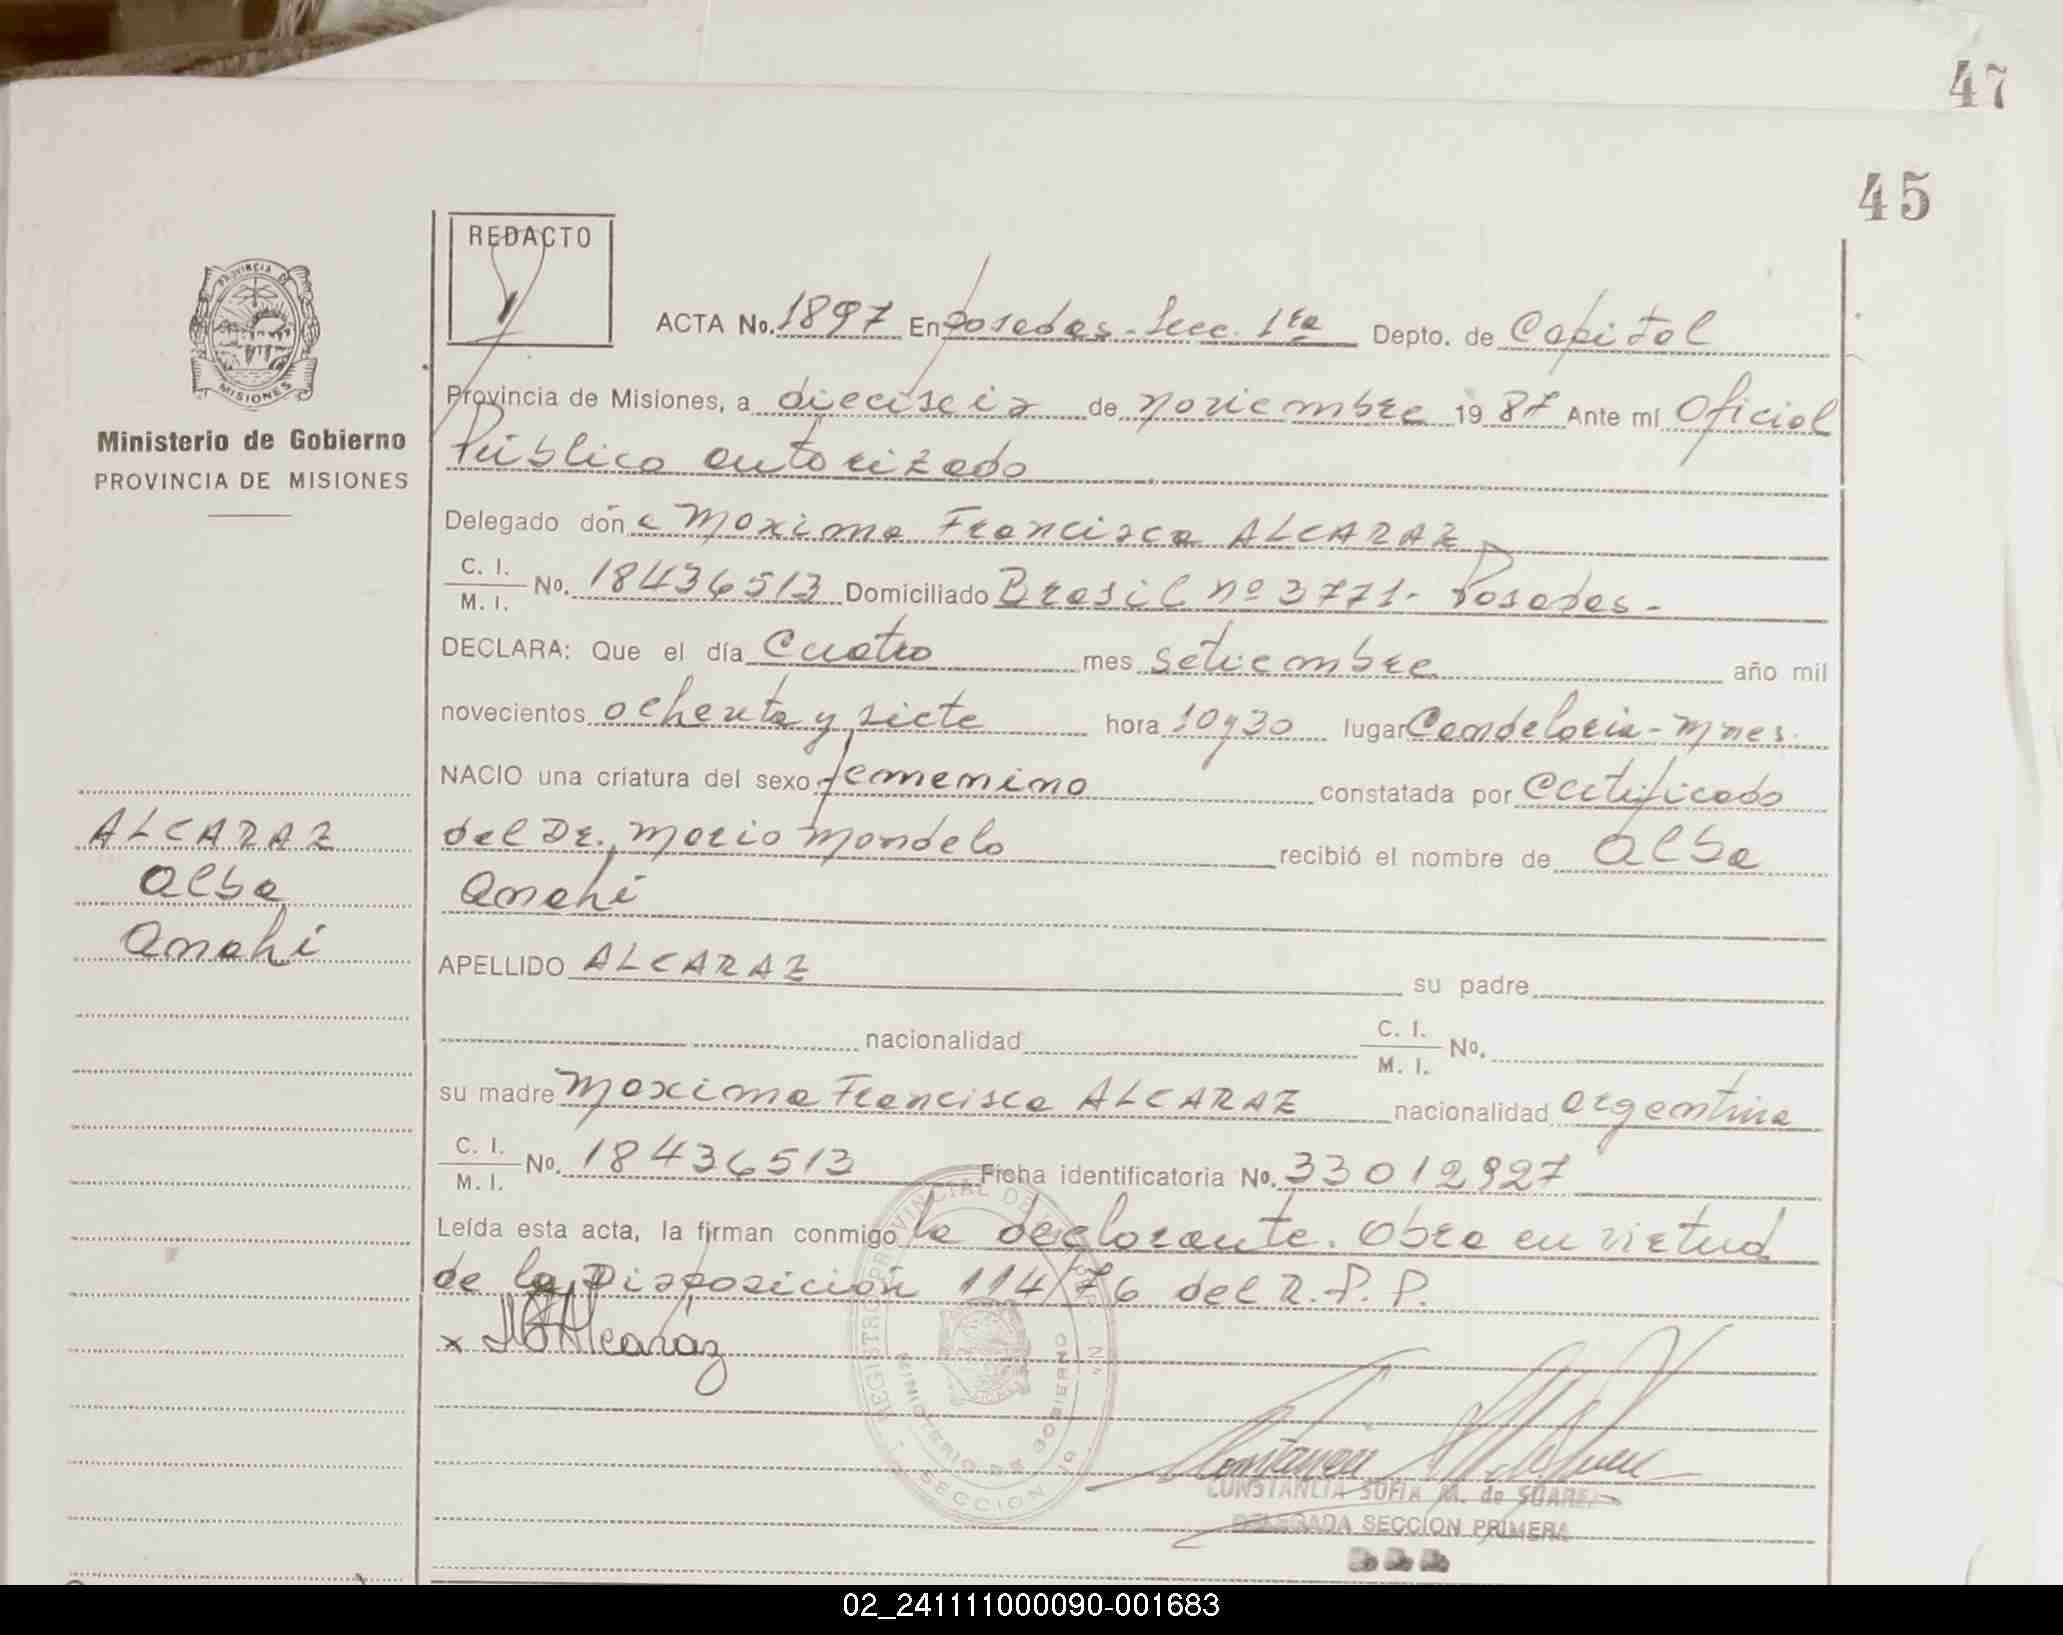 47
45
REDACTO
PROVINCIA DE
MISIONES
Ministerio de Gobierno
PROVINCIA DE MISIONES
ACTA No. 1897 En Posadas - Secc. 1ra Depto. de Capital
Provincia de Misiones, a dieciseis de noviembre 1987 Ante mí Oficial
Público autorizado
Delegado don Maxima Francisca ALCARAZ
C. I.
M. I. No. 18436513 Domiciliado Brasil nº 3771 - Posadas -
DECLARA: Que el día Cuatro mes setiembre año mil
novecientos ochenta y siete hora 10 y 30 lugar Candelaria - Mnes.
NACIO una criatura del sexo femenino constatada por Certificado
del Dr. Mario Mondelo recibió el nombre de Alba
Anahí
ALCARAZ
Alba
Anahí
APELLIDO ALCARAZ su padre
nacionalidad C. I.
M. I. No.
su madre Maxima Francisca ALCARAZ nacionalidad argentina
C. I.
M. I. No. 18436513 Ficha identificatoria No. 33012927
Leída esta acta, la firman conmigo la declarante. Obra en virtud
de la Disposición 114/76 del R. P. P.
x Alcaraz
REGISTRO PROVINCIAL DE
MINISTERIO DE GOBIERNO
SECCION 1a
CONSTANCIA SOFIA M. de SUAREZ
DELEGADA SECCION PRIMERA
02_241111000090-001683